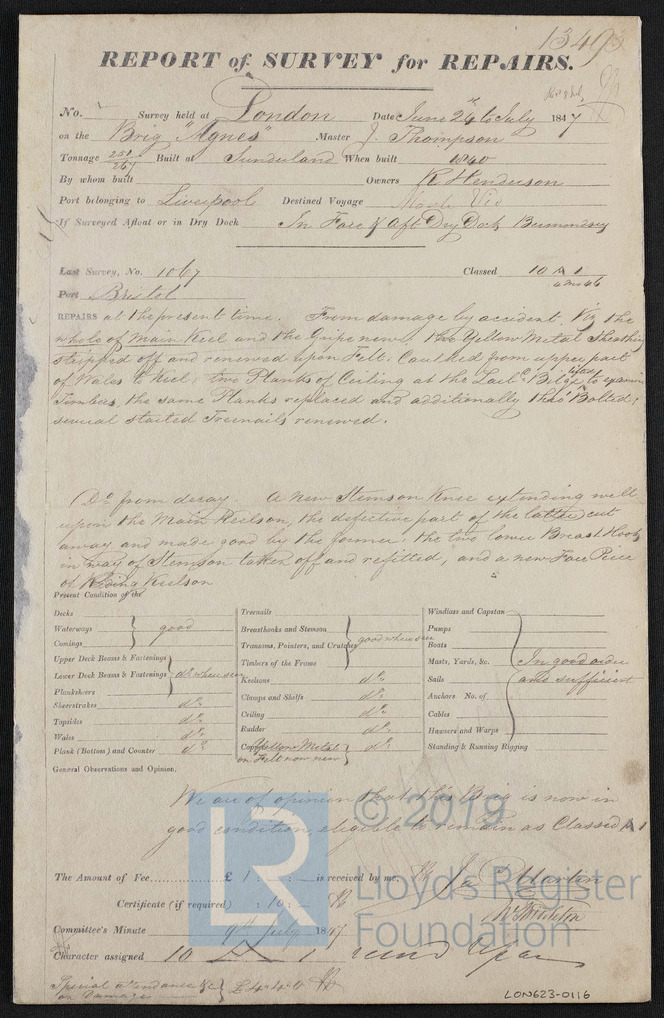 13493
REPORT of SURVEY for REPAIRS.
No. Survey held at London Date June 24 6 July 1847
on the Brig "Agnes" Master J. Thompson
Tonnage 250 267 Built at Sunderland When built 1840
By whom built Owners R Henderson
Port belonging to Liverpool Destined Voyage Monte Vid
If Surveyed Afloat or in Dry Dock In Fore & Aft Dry Dock Bermondsey
Last Survey, No. 1067 Classed 10 A 1
Port Bristol
REPAIRS at the present time. From damage by accident. Viz the
whole of Main Keel and the Gripe new, the Yellow Metal Sheathing
stripped off and renewed upon Felt. Caulked from upper part
of Wales to Keel, two Planks of Ceiling at the Larbd Bilge lifted to examine
Timbers, the same Planks replaced and additionally thro' Bolted;
several started Treenails renewed.
Do from decay. A new Stemson Knee extending well
upon the Main Keelson, the defective part of the latter cut
away and made good by the former, the two lower Breast Hooks
in way of Stemson taken off and refitted, and a new Fore Piece
of Riding Keelson
Present Condition of the
Decks
Waterways good
Comings
Upper Deck Beams & Fastenings
Lower Deck Beams & Fastenings do where seen
Plankshers
Sheerstrakes do
Topsides do
Wales do
Plank (Bottom) and Counter do
Treenails
Breasthooks and Stemson
Transoms, Pointers, and Crutches good where seen
Timbers of the Frame
Keelsons do
Clamps and Shelfs do
Ceiling do
Rudder do
Copper Yellow Metal on Felt now new do
Windlass and Capstan
Pumps
Boats
Masts, Yards, &c. In good order
Sails and sufficient
Anchors No. of
Cables
Hawsers and Warps
Standing & Running Rigging
General Observations and Opinion,
We are of opinion that this Brig is now in
good condition, eligible to remain as Classed A 1
The Amount of Fee £ 1 : : is received by me,
Certificate (if required) : 10 :
Committee's Minute 9th July 1847
Character assigned 10 A 1
Special attendance &c
on Damages £4.4.0
LON623-0116
LR
© 2019
Lloyd's Register
Foundation